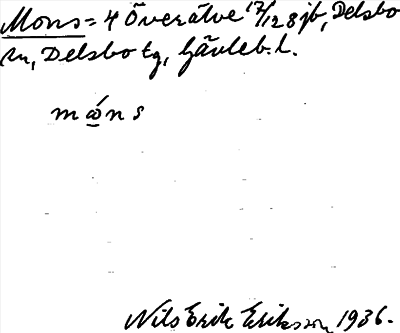 Mons = 4 Överälve 17/128 jb, Delsbo
sn, Delsbo tg, Gävleb. l.
måns
Nils Erik Eriksson 1936.